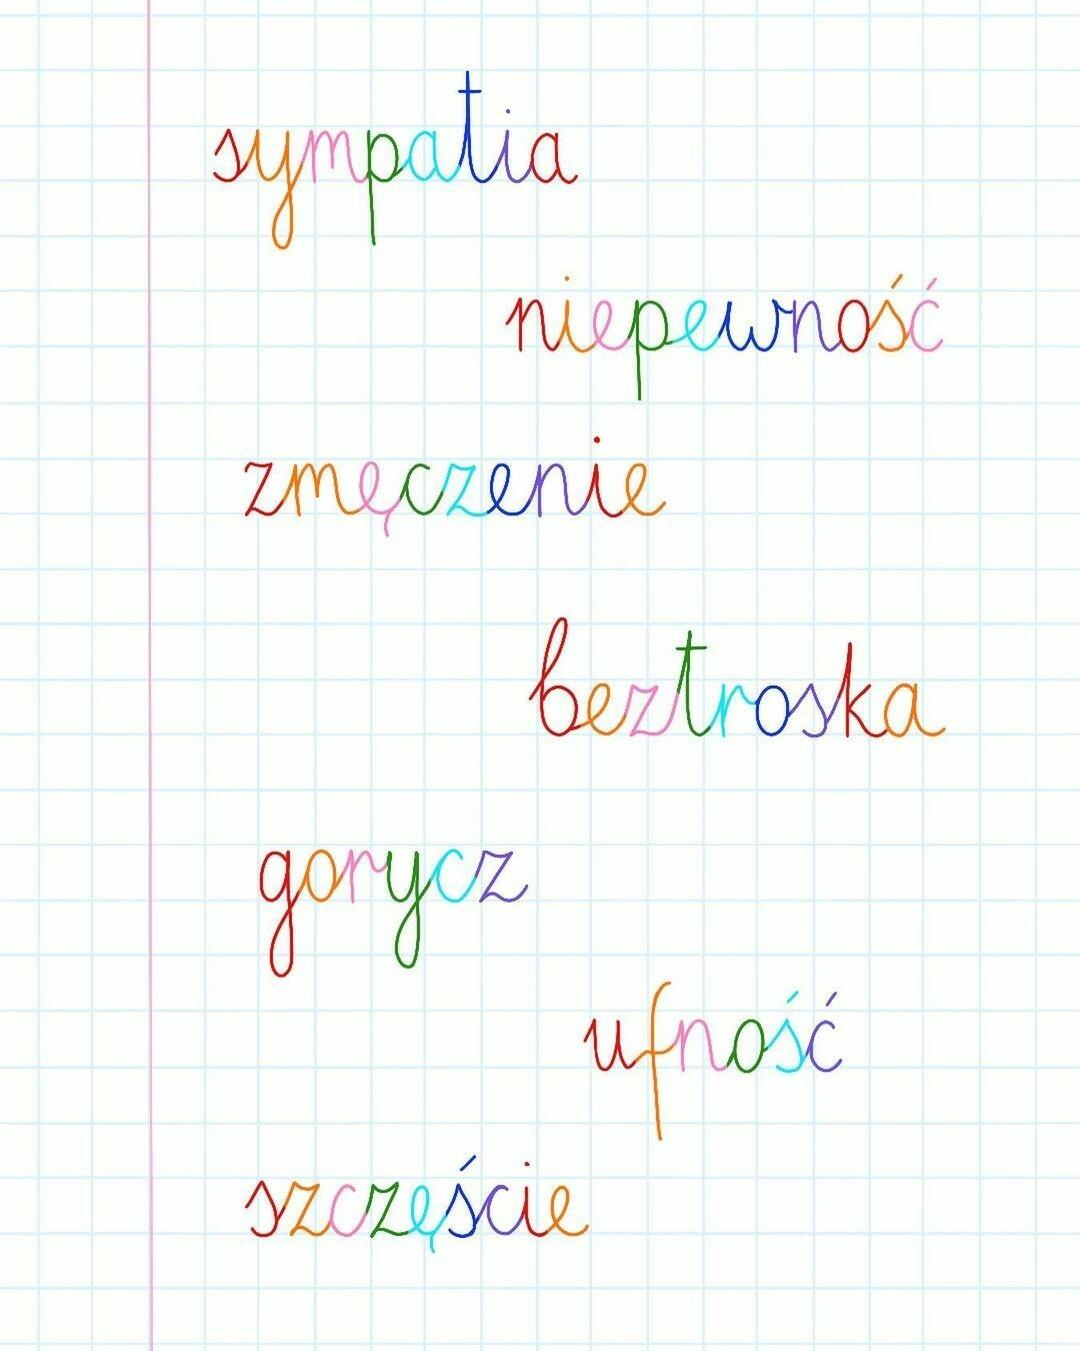 sympatia
niepewność
zmęczenie
beztroska
gorycz
ufność
szczęście